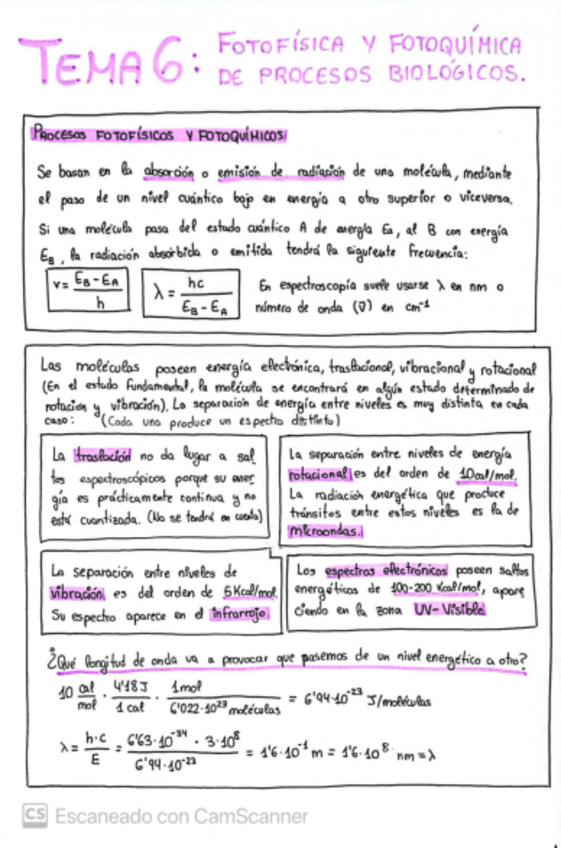 TEMA 6: FOTOFÍSICA Y FOTOQUÍMICA
DE PROCESOS BIOLÓGICOS.
PROCESOS FOTOFÍSICOS Y FOTOQUÍMICOS
Se basan en la absorción o emisión de radiación de una molécula, mediante
el paso de un nivel cuántico bajo en energía a otro superior o viceversa.
Si una molécula pasa del estado cuántico A de energía Ea, al B con energía
E_B, la radiación absorbida o emitida tendrá la siguiente frecuencia:
ν = (E_B - E_A) / h
λ = hc / (E_B - E_A)
En espectroscopía suele usarse λ en nm o
número de onda (ν̄) en cm⁻¹
Las moléculas poseen energía electrónica, traslacional, vibracional y rotacional
(En el estado fundamental, la molécula se encontrará en algún estado determinado de
rotación y vibración). La separación de energía entre niveles es muy distinta en cada
caso: (Cada uno produce un espectro distinto)
La traslación no da lugar a sal
tos espectroscópicos porque su ener
gía es prácticamente continua y no
está cuantizada. (No se tendrá en cuenta)
La separación entre niveles de energía
rotacional es del orden de 10cal/mol.
La radiación energética que produce
tránsitos entre estos niveles es la de
microondas.
La separación entre niveles de
vibración es del orden de 5 Kcal/mol.
Su espectro aparece en el infrarrojo.
Los espectros electrónicos poseen saltos
energéticos de 100-200 Kcal/mol, apare
ciendo en la zona UV-Visible
¿Qué longitud de onda va a provocar que pasemos de un nivel energético a otro?
10 cal/mol · 4'18 J/1 cal · 1mol/6'022·10²³ moléculas = 6'94·10⁻²³ J/moléculas
λ = h·c/E = 6'63·10⁻³⁴ · 3·10⁸ / 6'94·10⁻²³ = 1'6·10⁻¹ m = 1'6·10⁸ nm = λ
CS Escaneado con CamScanner